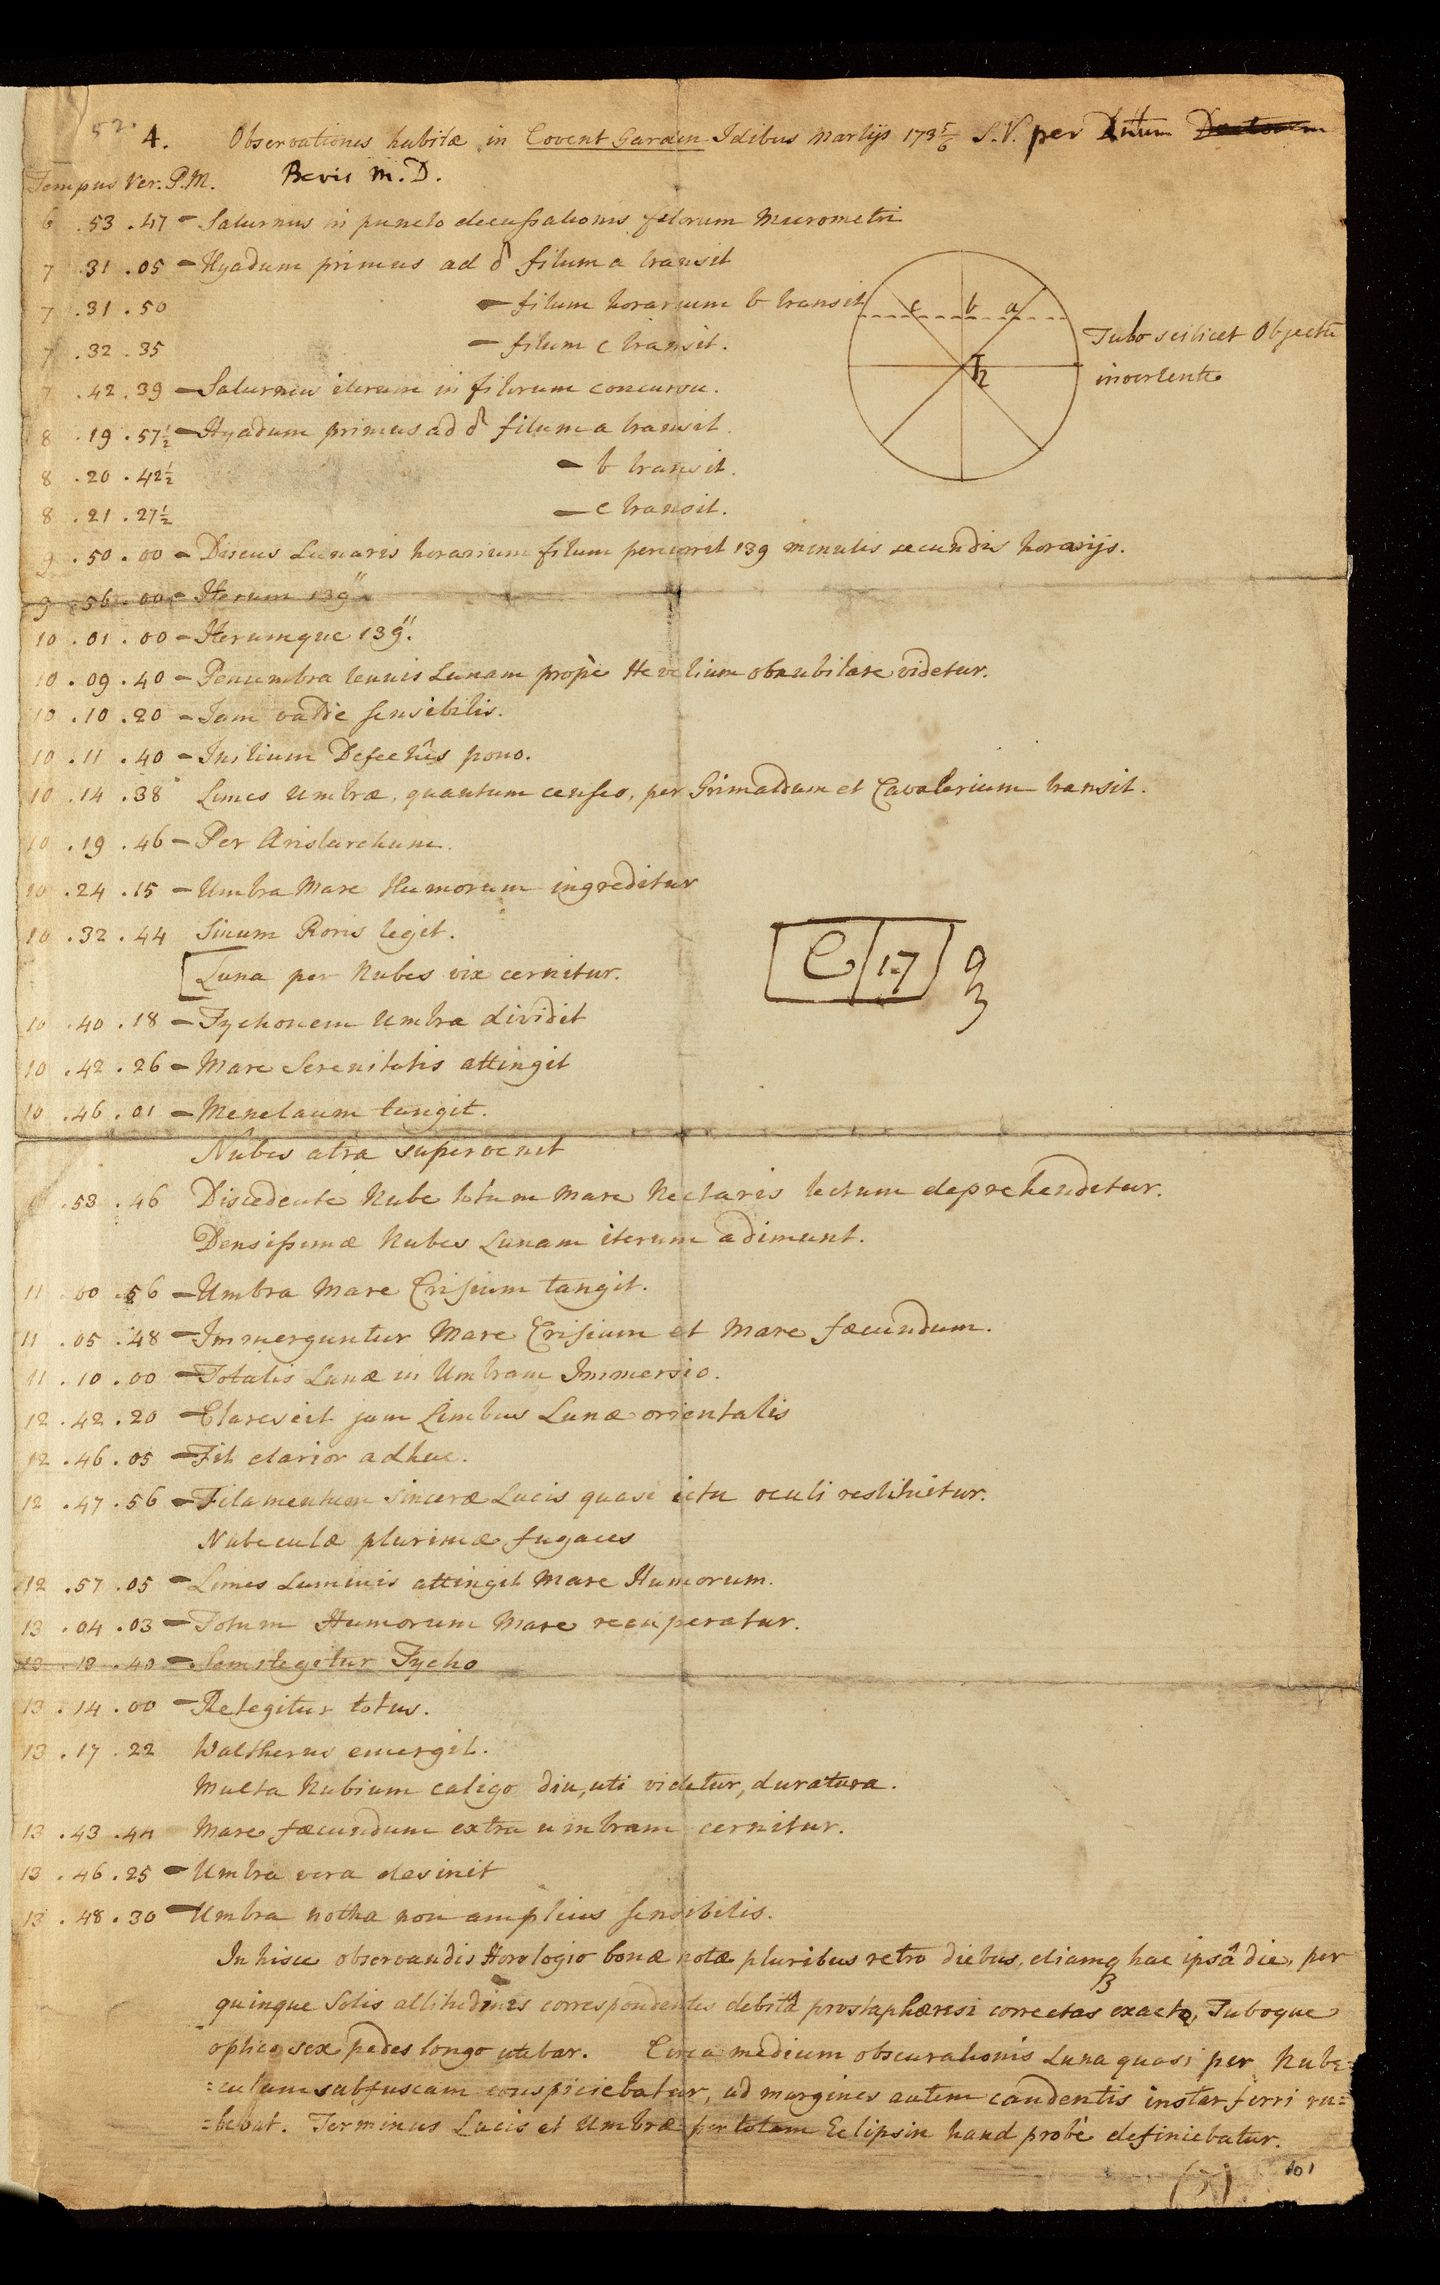 52.
4. Observationes habitæ in Covent Garden Idibus Martijs 173 5/6 S.V. per Dñum
Bevis M.D.
Tempus Ver. P.M.
6 . 53 . 47 - Saturnus in puncto decussationis filorum Micrometri
7 . 31 . 05 - Hyadum primus ad δ filum a transit
7 . 31 . 50 - filum horarium b transit
7 . 32 . 35 - filum c transit.
7 . 42 . 39 - Saturnus iterum in filorum concursu.
8 . 19 . 57½ - Hyadum primus ad δ filum a transit.
8 . 20 . 42½ - b transit.
8 . 21 . 27½ - c transit.
c b a
♄
Tubo scilicet Objecta
invertente
9 . 50 . 00 - Discus Lunaris horarium filum percurrit 139 minutis secundis horarijs.
9 . 56 . 00 - Iterum 139"
10 . 01 . 00 - Iterumque 139".
10 . 09 . 40 - Penumbra tenuis Lunam propè Hevelium obnubilare videtur.
10 . 10 . 20 - Jam valde sensibilis.
10 . 11 . 40 - Initium Defectûs pono.
10 . 14 . 38 Limes Umbræ, quantum censeo, per Grimaldum et Cavalerium transit.
10 . 19 . 46 - Per Aristarchum.
10 . 24 . 15 - Umbra Mare Humorum ingreditur
10 . 32 . 44 Sinum Roris tegit.
[Luna per Nubes vix cernitur.
17
10 . 40 . 18 - Tychonem Umbra dividit
10 . 42 . 26 - Mare Serenitatis attingit
10 . 46 . 01 - Menelaum tangit.
Nubes atra supervenit
. 53 . 46 Discedente Nube totum Mare Nectaris tectum deprehenditur.
Densissimæ Nubes Lunam iterum adimunt.
11 . 00 . 56 - Umbra Mare Crisium tangit.
11 . 05 . 48 - Immerguntur Mare Crisium et Mare fæcundum.
11 . 10 . 00 - Totalis Lunæ in Umbram Immersio.
12 . 42 . 20 - Clarescit jam Limbus Lunæ orientalis
12 . 46 . 05 - Fit clarior adhuc.
12 . 47 . 56 - Filamentum sinceræ Lucis quasi ictu oculi restituitur.
Nubeculæ plurimæ fugaces
12 . 57 . 05 - Limes Luminis attingit Mare Humorum.
13 . 04 . 03 - Totum Humorum Mare recuperatur.
13 . 13 . 40 - Semitegitur Tycho
13 . 14 . 00 - Retegitur totus.
13 . 17 . 22 Waltherus emergit.
Multa Nubium caligo diu, uti videtur, duratura.
13 . 43 . 44 Mare fæcundum extra umbram cernitur.
13 . 46 . 25 - Umbra vera desinit
13 . 48 . 30 - Umbra notha non amplius sensibilis.
In hisce observandis Horologio bonæ notæ pluribus retro diebus, etiamq hac ipsâ die, per
quinque Solis altitudines correspondentes debitâ prostaphæresi correctas exacto, Tuboque
optico sex pedes longo utebar. Circa medium obscurationis Luna quasi per Nube=
=culam subfuscam conspiciebatur, ad margines autem candentis instar ferri ru=
=bebat. Terminus Lucis et Umbræ per totam Eclipsin haud probè definiebatur.
101